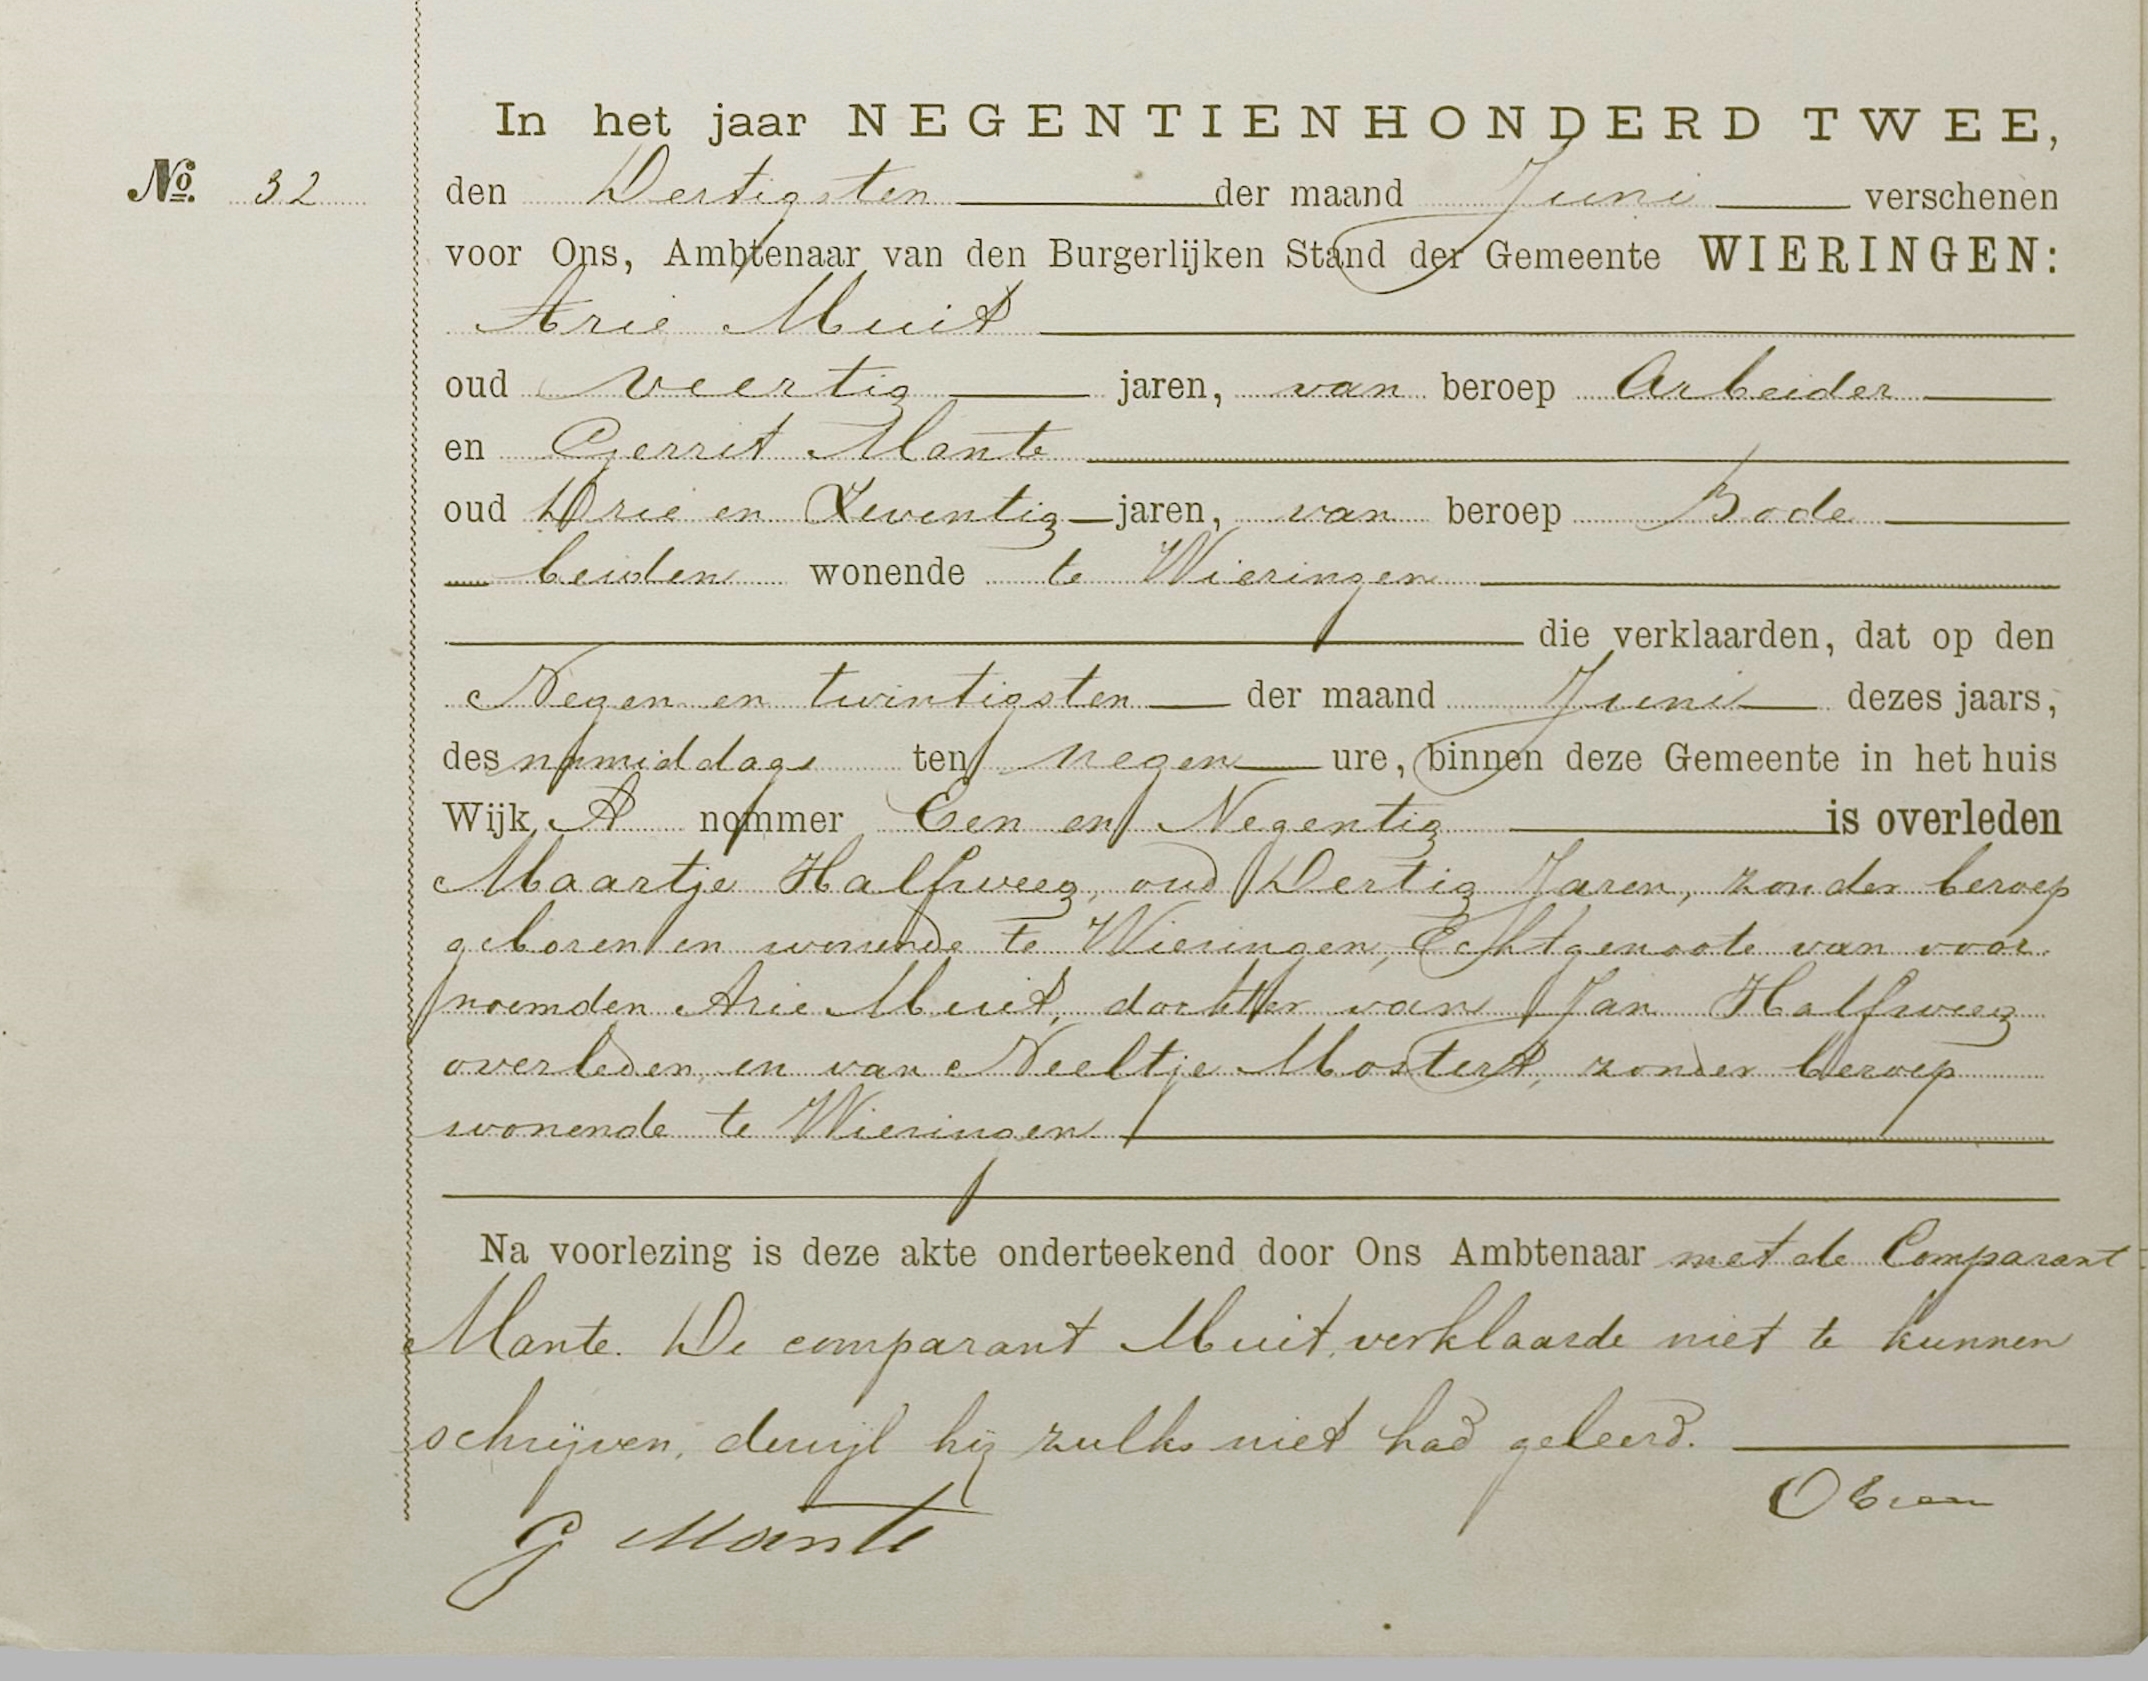 In het jaar NEGENTIENHONDERD TWEE,
No. 32 den Dertigsten der maand Juni verschenen
voor Ons, Ambtenaar van den Burgerlijken Stand der Gemeente WIERINGEN:
Arie Muit
oud veertig jaren, van beroep Arbeider
en Gerrit Mante
oud Drie en Zeventig jaren, van beroep Bode
beiden wonende te Wieringen
die verklaarden, dat op den
Negen en twintigsten der maand Juni dezes jaars,
des namiddags ten negen ure, binnen deze Gemeente in het huis
Wijk A nommer Een en Negentig is overleden
Maartje Halfweeg, oud Dertig Jaren, zonder beroep
geboren en wonende te Wieringen, Echtgenoote van voor
noemden Arie Muit, dochter van Jan Halfweeg
overleden, en van Neeltje Mostert, zonder beroep
wonende te Wieringen
Na voorlezing is deze akte onderteekend door Ons Ambtenaar met de Comparant
Mante. De comparant Muit, verklaarde niet te kunnen
schrijven, dewijl hij zulks niet had geleerd.
G Mante